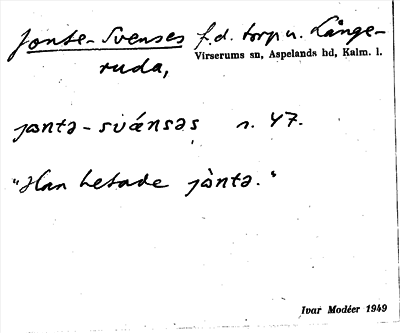 Jonte-Svenses f.d. torp u. Långe-
Virserums sn, Aspelands hd, Kalm. l.
ruda,
jɔntə-sväńsəs n. 47.
"Han hetade jɔ̀ntə."
Ivar Modéer 1949